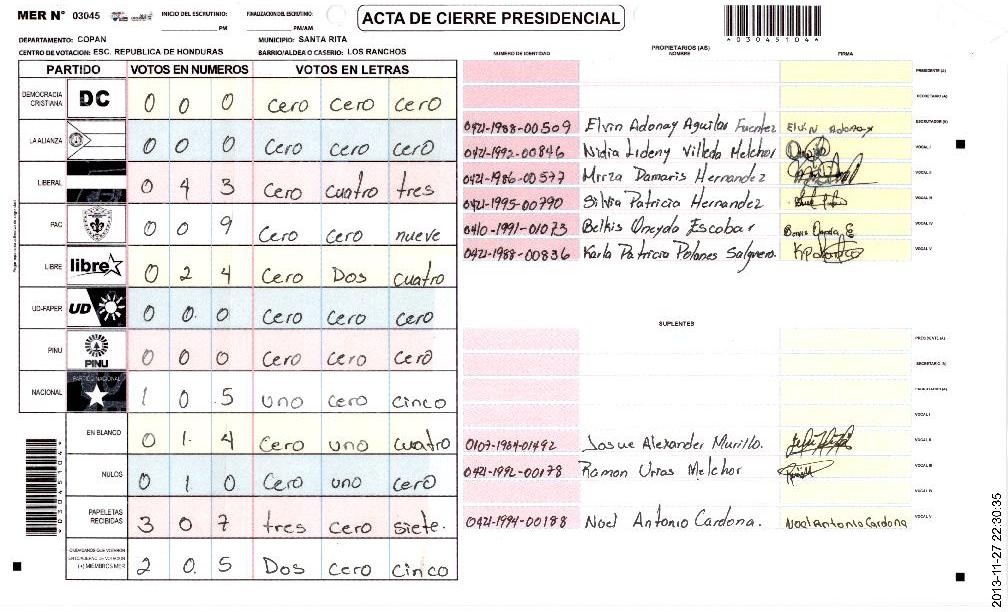 MER N° 03045
INICIO DEL ESCRUTINIO: PM
FINALIZACION DEL ESCRUTINIO: PM/AM
ACTA DE CIERRE PRESIDENCIAL
*03045104*
DEPARTAMENTO: COPAN
MUNICIPIO: SANTA RITA
CENTRO DE VOTACION: ESC. REPUBLICA DE HONDURAS
BARRIO/ALDEA O CASERIO: LOS RANCHOS
PARTIDO VOTOS EN NUMEROS VOTOS EN LETRAS
DEMOCRACIA CRISTIANA DC 0 0 0 Cero Cero Cero
LA ALIANZA 0 0 0 Cero Cero Cero
LIBERAL 0 4 3 Cero cuatro tres
PAC 0 0 9 Cero Cero nueve
LIBRE libre 0 2 4 Cero Dos cuatro
UD-FAPER UD 0 0. 0 Cero Cero Cero
PINU PINU 0 0 0 Cero Cero Cero
NACIONAL PARTIDO NACIONAL 1 0 .5 uno cero cinco
EN BLANCO 0 1. 4 Cero uno cuatro
NULOS 0 1 0 Cero uno cero
PAPELETAS RECIBIDAS 3 0 7 tres cero siete.
CIUDADANOS QUE VOTARON EN CUADERNO DE VOTACION (+) MIEMBROS MER 2 0. 5 Dos Cero cinco
PROPIETARIOS (AS)
NUMERO DE IDENTIDAD NOMBRE FIRMA
PRESIDENTE (A)
SECRETARIO (A)
0421-1988-00509 Elvin Adonay Aguilar Fuentez Elvin Adonay ESCRUTADOR (A)
0421-1992-00846 Nidia Lideny Villeda Melchor VOCAL I
0421-1986-00577 Mirza Damaris Hernandez VOCAL II
0421-1995-00790 Silvia Patricia Hernandez VOCAL III
0410-1991-01073 Belkis Oneyda Escobar VOCAL IV
0421-1988-00836 Karla Patricia Polanes Salguero. VOCAL V
SUPLENTES
PRESIDENTE (A)
SECRETARIO (A)
ESCRUTADOR (A)
VOCAL I
0107-1984-01492 Josue Alexander Murillo. VOCAL II
0421-1992-00178 Ramon Urias Melchor VOCAL III
VOCAL IV
0421-1994-00188 Noel Antonio Cardona. Noel Antonio Cardona VOCAL V
2013-11-27 22:30:35